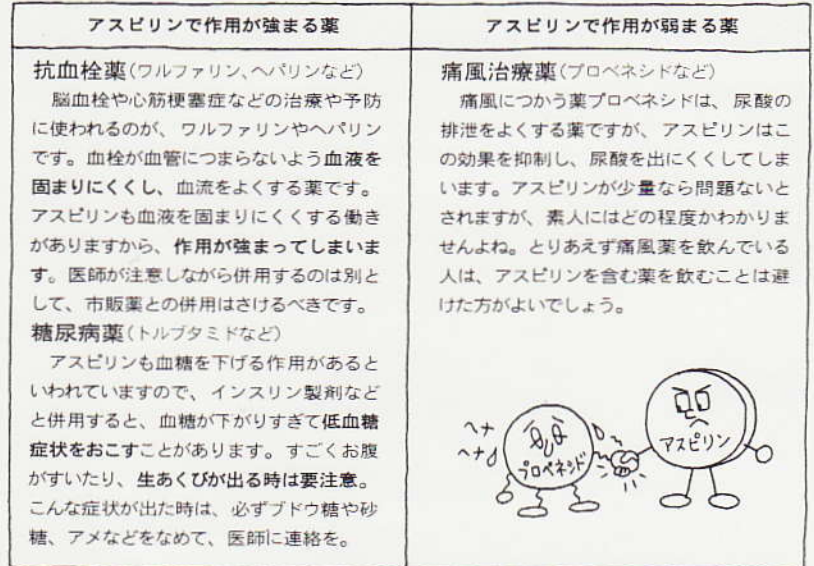 アスピリンで作用が強まる薬
抗血栓薬(ワルファリン、ヘパリンなど)
脳血栓や心筋梗塞症などの治療や予防
に使われるのが、ワルファリンやヘパリン
です。血栓が血管につまらないよう血液を
固まりにくくし、血流をよくする薬です。
アスピリンも血液を固まりにくくする働き
がありますから、作用が強まってしまいま
す。医師が注意しながら併用するのは別と
して、市販薬との併用はさけるべきです。
糖尿病薬(トルブタミドなど)
アスピリンも血糖を下げる作用があると
いわれていますので、インスリン製剤など
と併用すると、血糖が下がりすぎて低血糖
症状をおこすことがあります。すごくお腹
がすいたり、生あくびが出る時は要注意。
こんな症状が出た時は、必ずブドウ糖や砂
糖、アメなどをなめて、医師に連絡を。
アスピリンで作用が弱まる薬
痛風治療薬(プロベネシドなど)
痛風につかう薬プロベネシドは、尿酸の
排泄をよくする薬ですが、アスピリンはこ
の効果を抑制し、尿酸を出にくくしてしま
います。アスピリンが少量なら問題ないと
されますが、素人にはどの程度かわかりま
せんよね。とりあえず痛風薬を飲んでいる
人は、アスピリンを含む薬を飲むことは避
けた方がよいでしょう。
ヘナ
ヘナ
プロベネシド
アスピリン